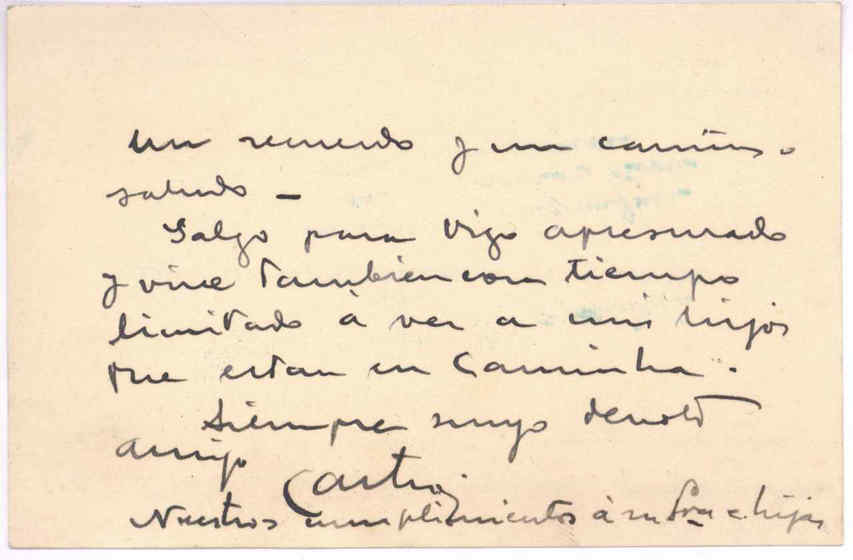 Un recuerdo y un cariños.o
saludo —
Salgo para Vigo apresurado
y vine tambien con tiempo
limitado à ver a mis hijos
que estan en Caminha.
Siempre suyo devoto
amigo
Castro
Nuestros cumplimientos à su Sra e hijos